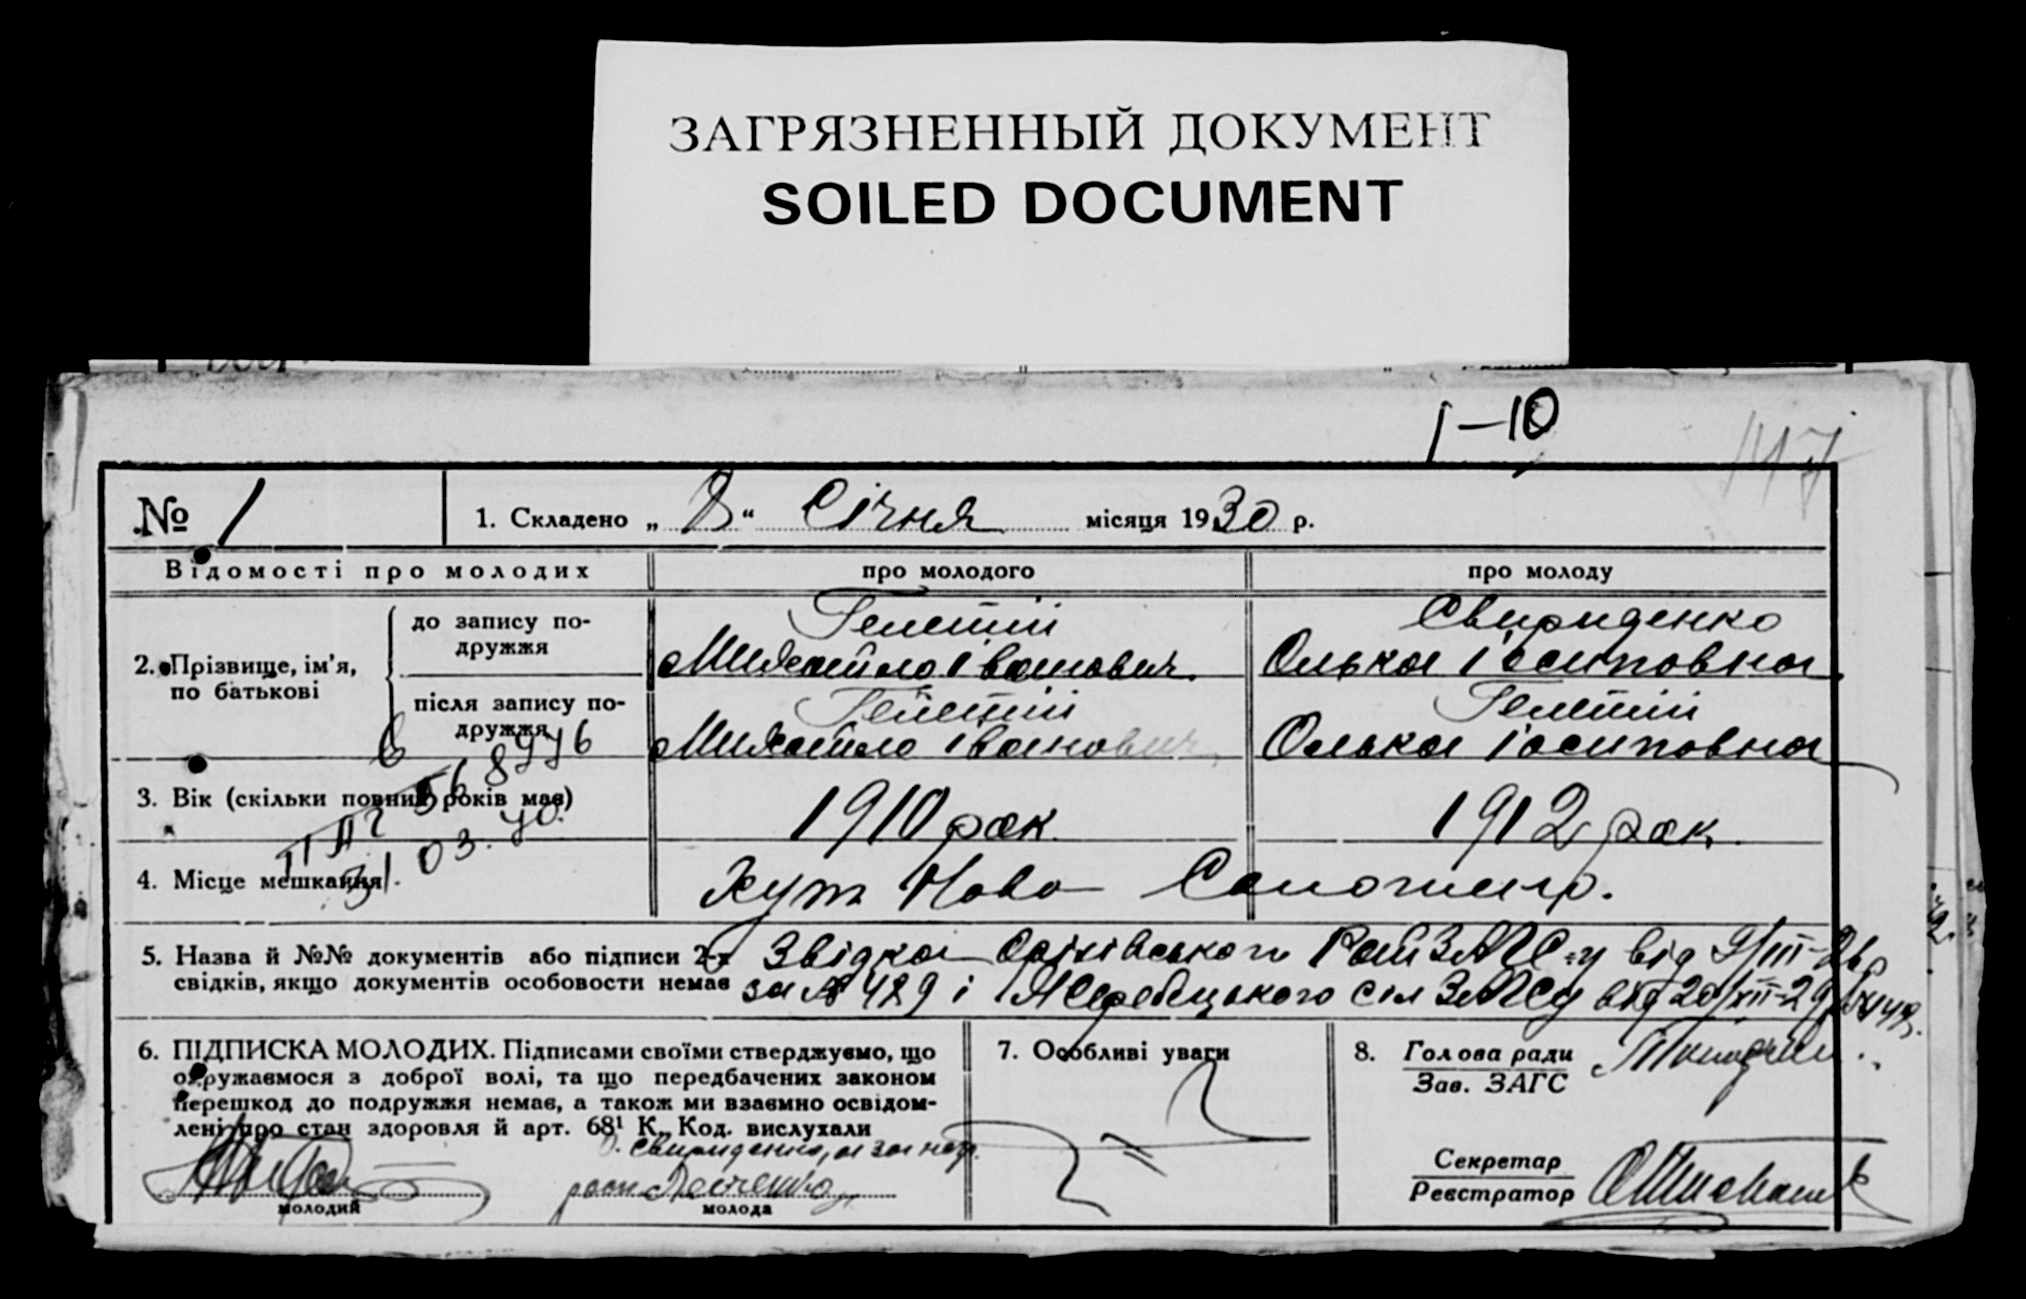 ЗАГРЯЗНЕННЫЙ ДОКУМЕНТ
SOILED DOCUMENT
1–10
147
№ 1
1. Складено „ 2 “ Січня місяця 1930 р.
Відомості про молодих
про молодого
про молоду
2. Прізвище, ім’я, по батькові
до запису подружжя
Гелетій
Михайло Іванович.
Свириденко
Олька Іосиповна
після запису подружжя
Гелетій
Михайло Іванович
Гелетій
Олька Іосиповна
3. Вік (скільки повних років має)
1910 рок
1912 рок.
31.03.70.
4. Місце мешкання
Хут Ново
5. Назва й №№ документів або підписи 2-х
свідків, якщо документів особовости немає
Звідка Оріхівського РайЗАГС-у від
за № 429 і Жеребецького сіл ЗАГСу від 20/XII-29
6. ПІДПИСКА МОЛОДИХ. Підписами своїми стверджуємо, що
одружаємося з доброї волі, та що передбачених законом
перешкод до подружжя немає, а також ми взаємно освідом-
лені про стан здоровля й арт. 68¹ К. Код. вислухали
Свириденко, а за негр.
молодий
молода
7. Особливі уваги
8. Голова ради
Зав. ЗАГС
Секретар
Реєстратор